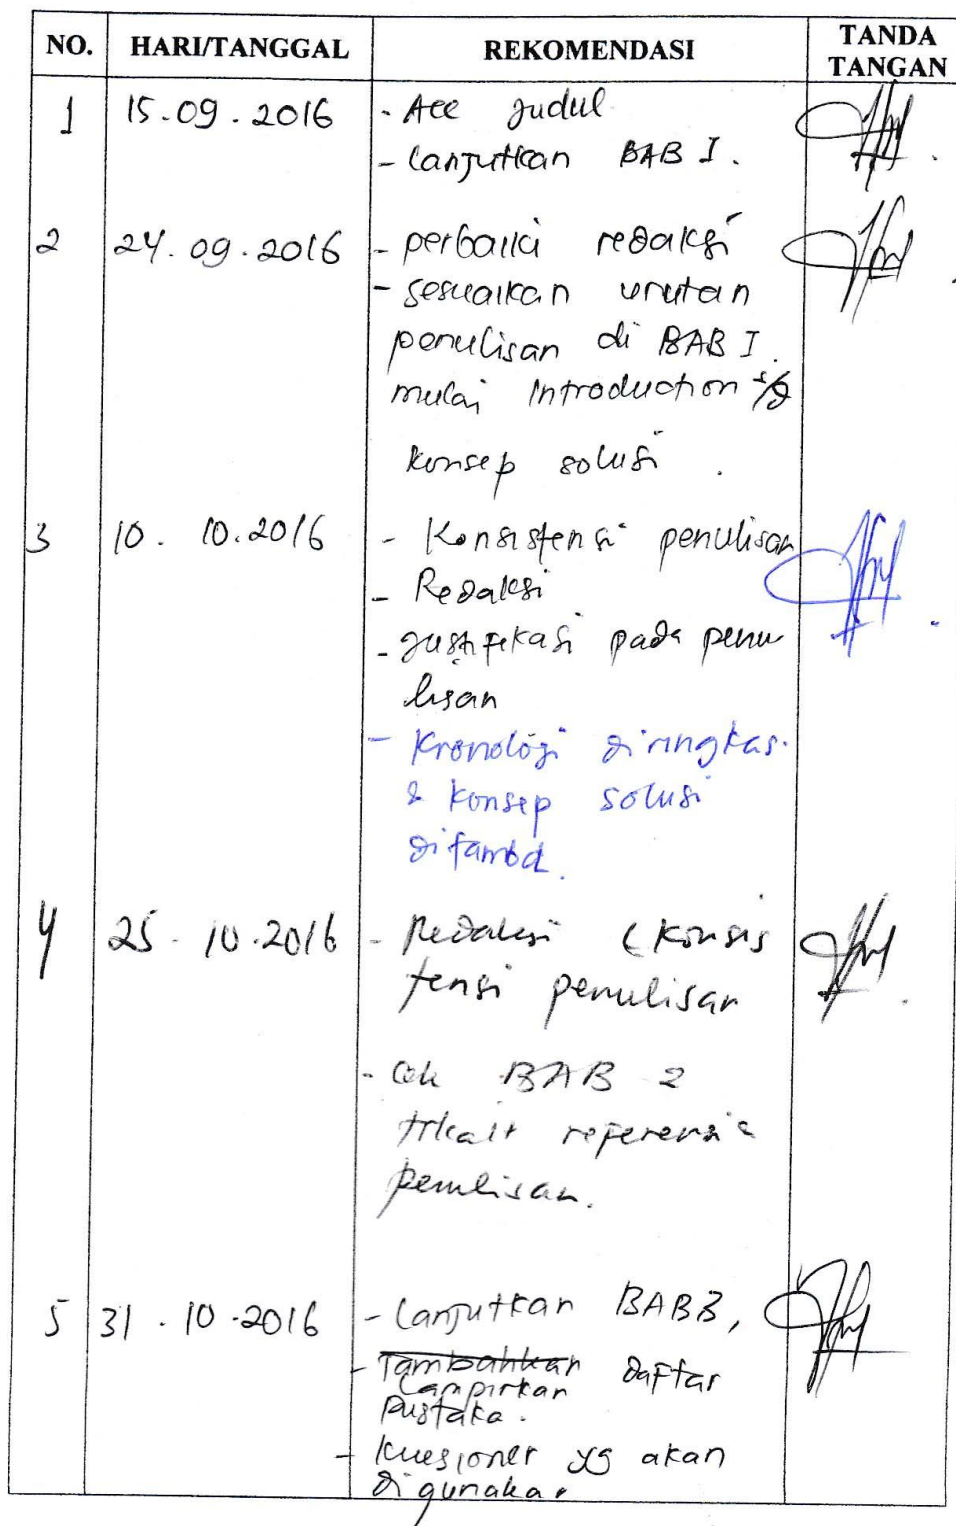 NO. HARI/TANGGAL REKOMENDASI TANDA TANGAN
1 15.09.2016 - Acc Judul
- Lanjutkan BAB I.
2 24.09.2016 - perbaiki redaksi
- sesuaikan urutan
penulisan di BAB I.
mulai Introduction s/d
konsep solusi.
3 10.10.2016 - Konsistensi penulisan
- Redaksi
- Justifikasi pada penu
lisan
- Kronologi diringkas.
& konsep solusi
ditambah.
4 25-10.2016 - Redaksi (Konsis
tensi penulisan
- Cek BAB 2
terkait referensi &
penulisan.
5 31.10.2016 - Lanjutkan BAB 3,
- Tambahkan daftar
Lampirkan
Pustaka.
- Kuesioner yg akan
digunakan